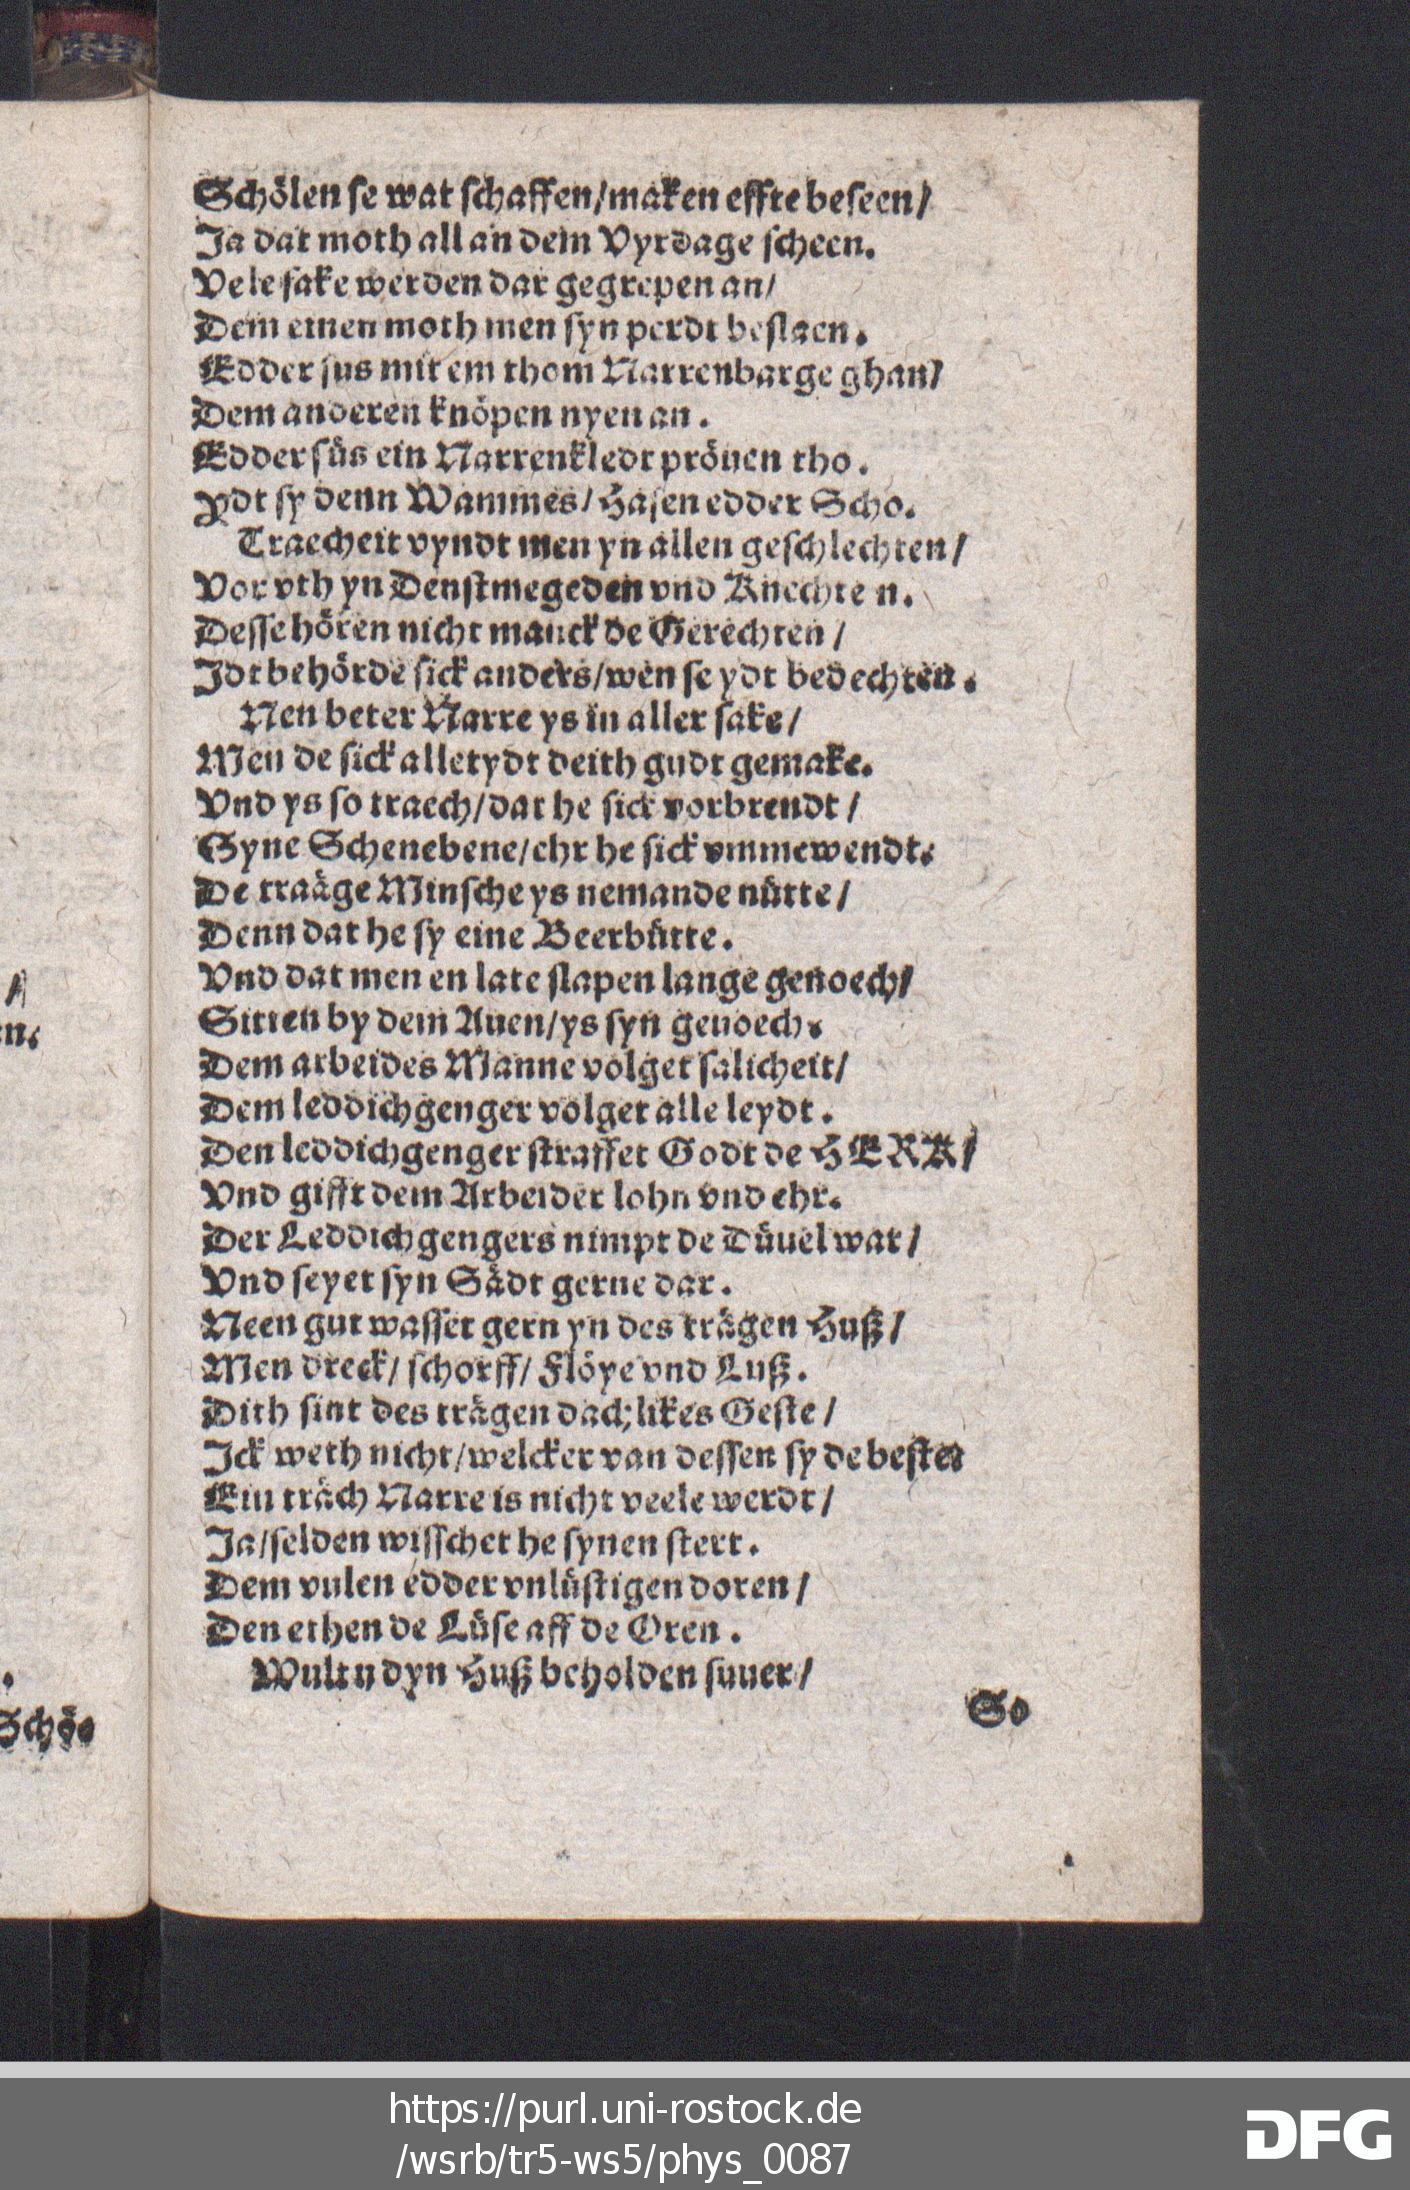 Schölen ſe wat ſchaffen/maken effte beſeen/
Ja dat moth all an dem Vyrdage ſcheen.
Vele ſake werden dar gegrepen an/
Dem einen moth men ſyn perdt beſlaen.
Edder ſus mit em thom Narrenbarge ghan/
Dem anderen knöpen nyen an.
Edder ſüs ein Narrenkledt pröuen tho.
Ydt ſy denn Wammes/Haſen edder Scho.
Traecheit vyndt men yn allen geſchlechten/
Vor vth yn Denſtmegeden vnd Knechte n.
Deſſe hören nicht manck de Gerechten/
Idt behörde ſick anders/wen ſe ydt bedechten.
Nen beter Narre ys in aller ſake/
Men de ſick alletydt deith gudt gemake.
Vnd ys ſo traech/dat he ſick vorbrendt/
Syne Schenebene/ehr he ſick vmmewendt.
De traäge Minſche ys nemande nütte/
Denn dat he ſy eine Beerbütte.
Vnd dat men en late ſlapen lange genoech/
Sitten by dem Auen/ys ſyn genoech.
Dem arbeides Manne volget ſalicheit/
Dem leddichgenger volget alle leydt.
Den leddichgenger ſtraffet Godt de HERR/
Vnd gifft dem Arbeider lohn vnd ehr.
Der Leddichgengers nimpt de Düuel war/
Vnd ſeyet ſyn Sädt gerne dar.
Neen gut waſſet gern yn des trägen Huß/
Men dreck/ ſchorff/ Flöye vnd Luß.
Dith ſint des trägen dachlikes Geſte/
Ick weth nicht/welcker van deſſen ſy de beſte.
Ein träch Narre is nicht veele werdt/
Ja/ſelden wiſſchet he ſynen ſtert.
Dem vulen edder vnlüſtigen doren/
Den ethen de Lüſe aff de Oren.
Wultu dyn Huß beholden ſuuer/
So
en.
Schö-
https://purl.uni-rostock.de
/wsrb/tr5-ws5/phys_0087
DFG